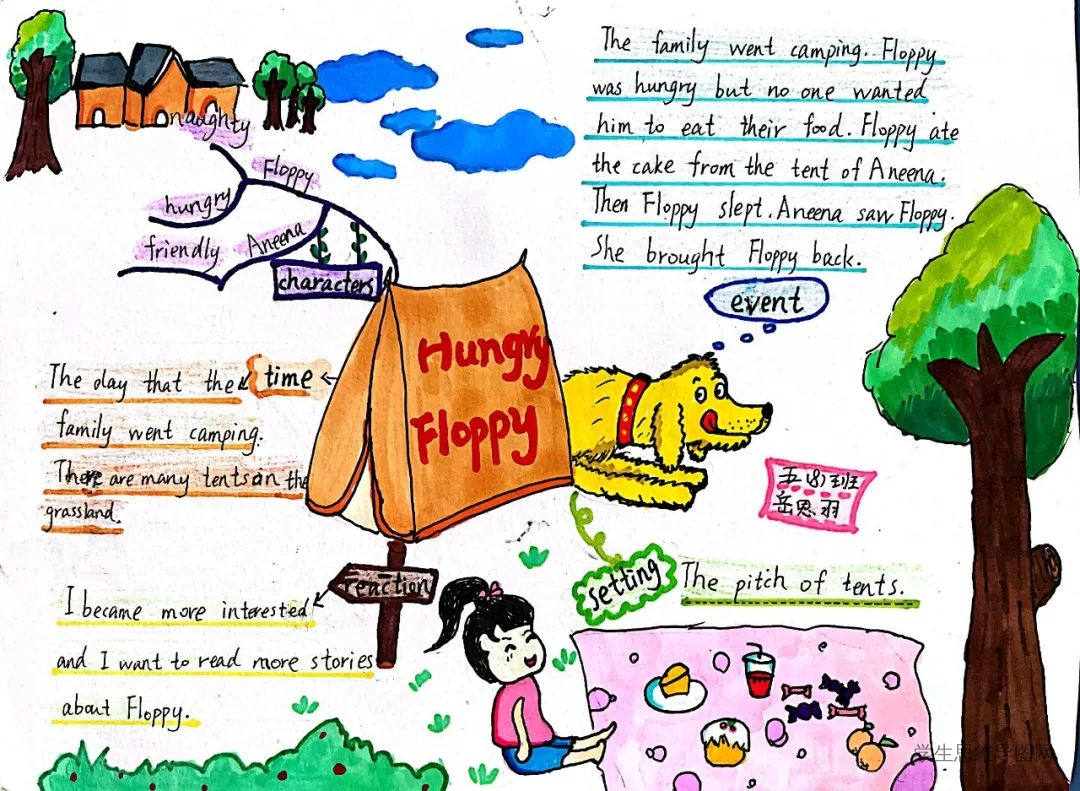 The family went camping. Floppy
was hungry but no one wanted
him to eat their food. Floppy ate
the cake from the tent of Aneena.
Then Floppy slept. Aneena saw Floppy.
She brought Floppy back.
event
naughty
Floppy
hungry
friendly
Aneena
characters
Hungry
Floppy
time
The day that the
family went camping.
There are many tents on the
grassland.
五(8)班
岳思羽
setting
The pitch of tents.
reaction
I became more interested
and I want to read more stories
about Floppy.
学生思维导图网